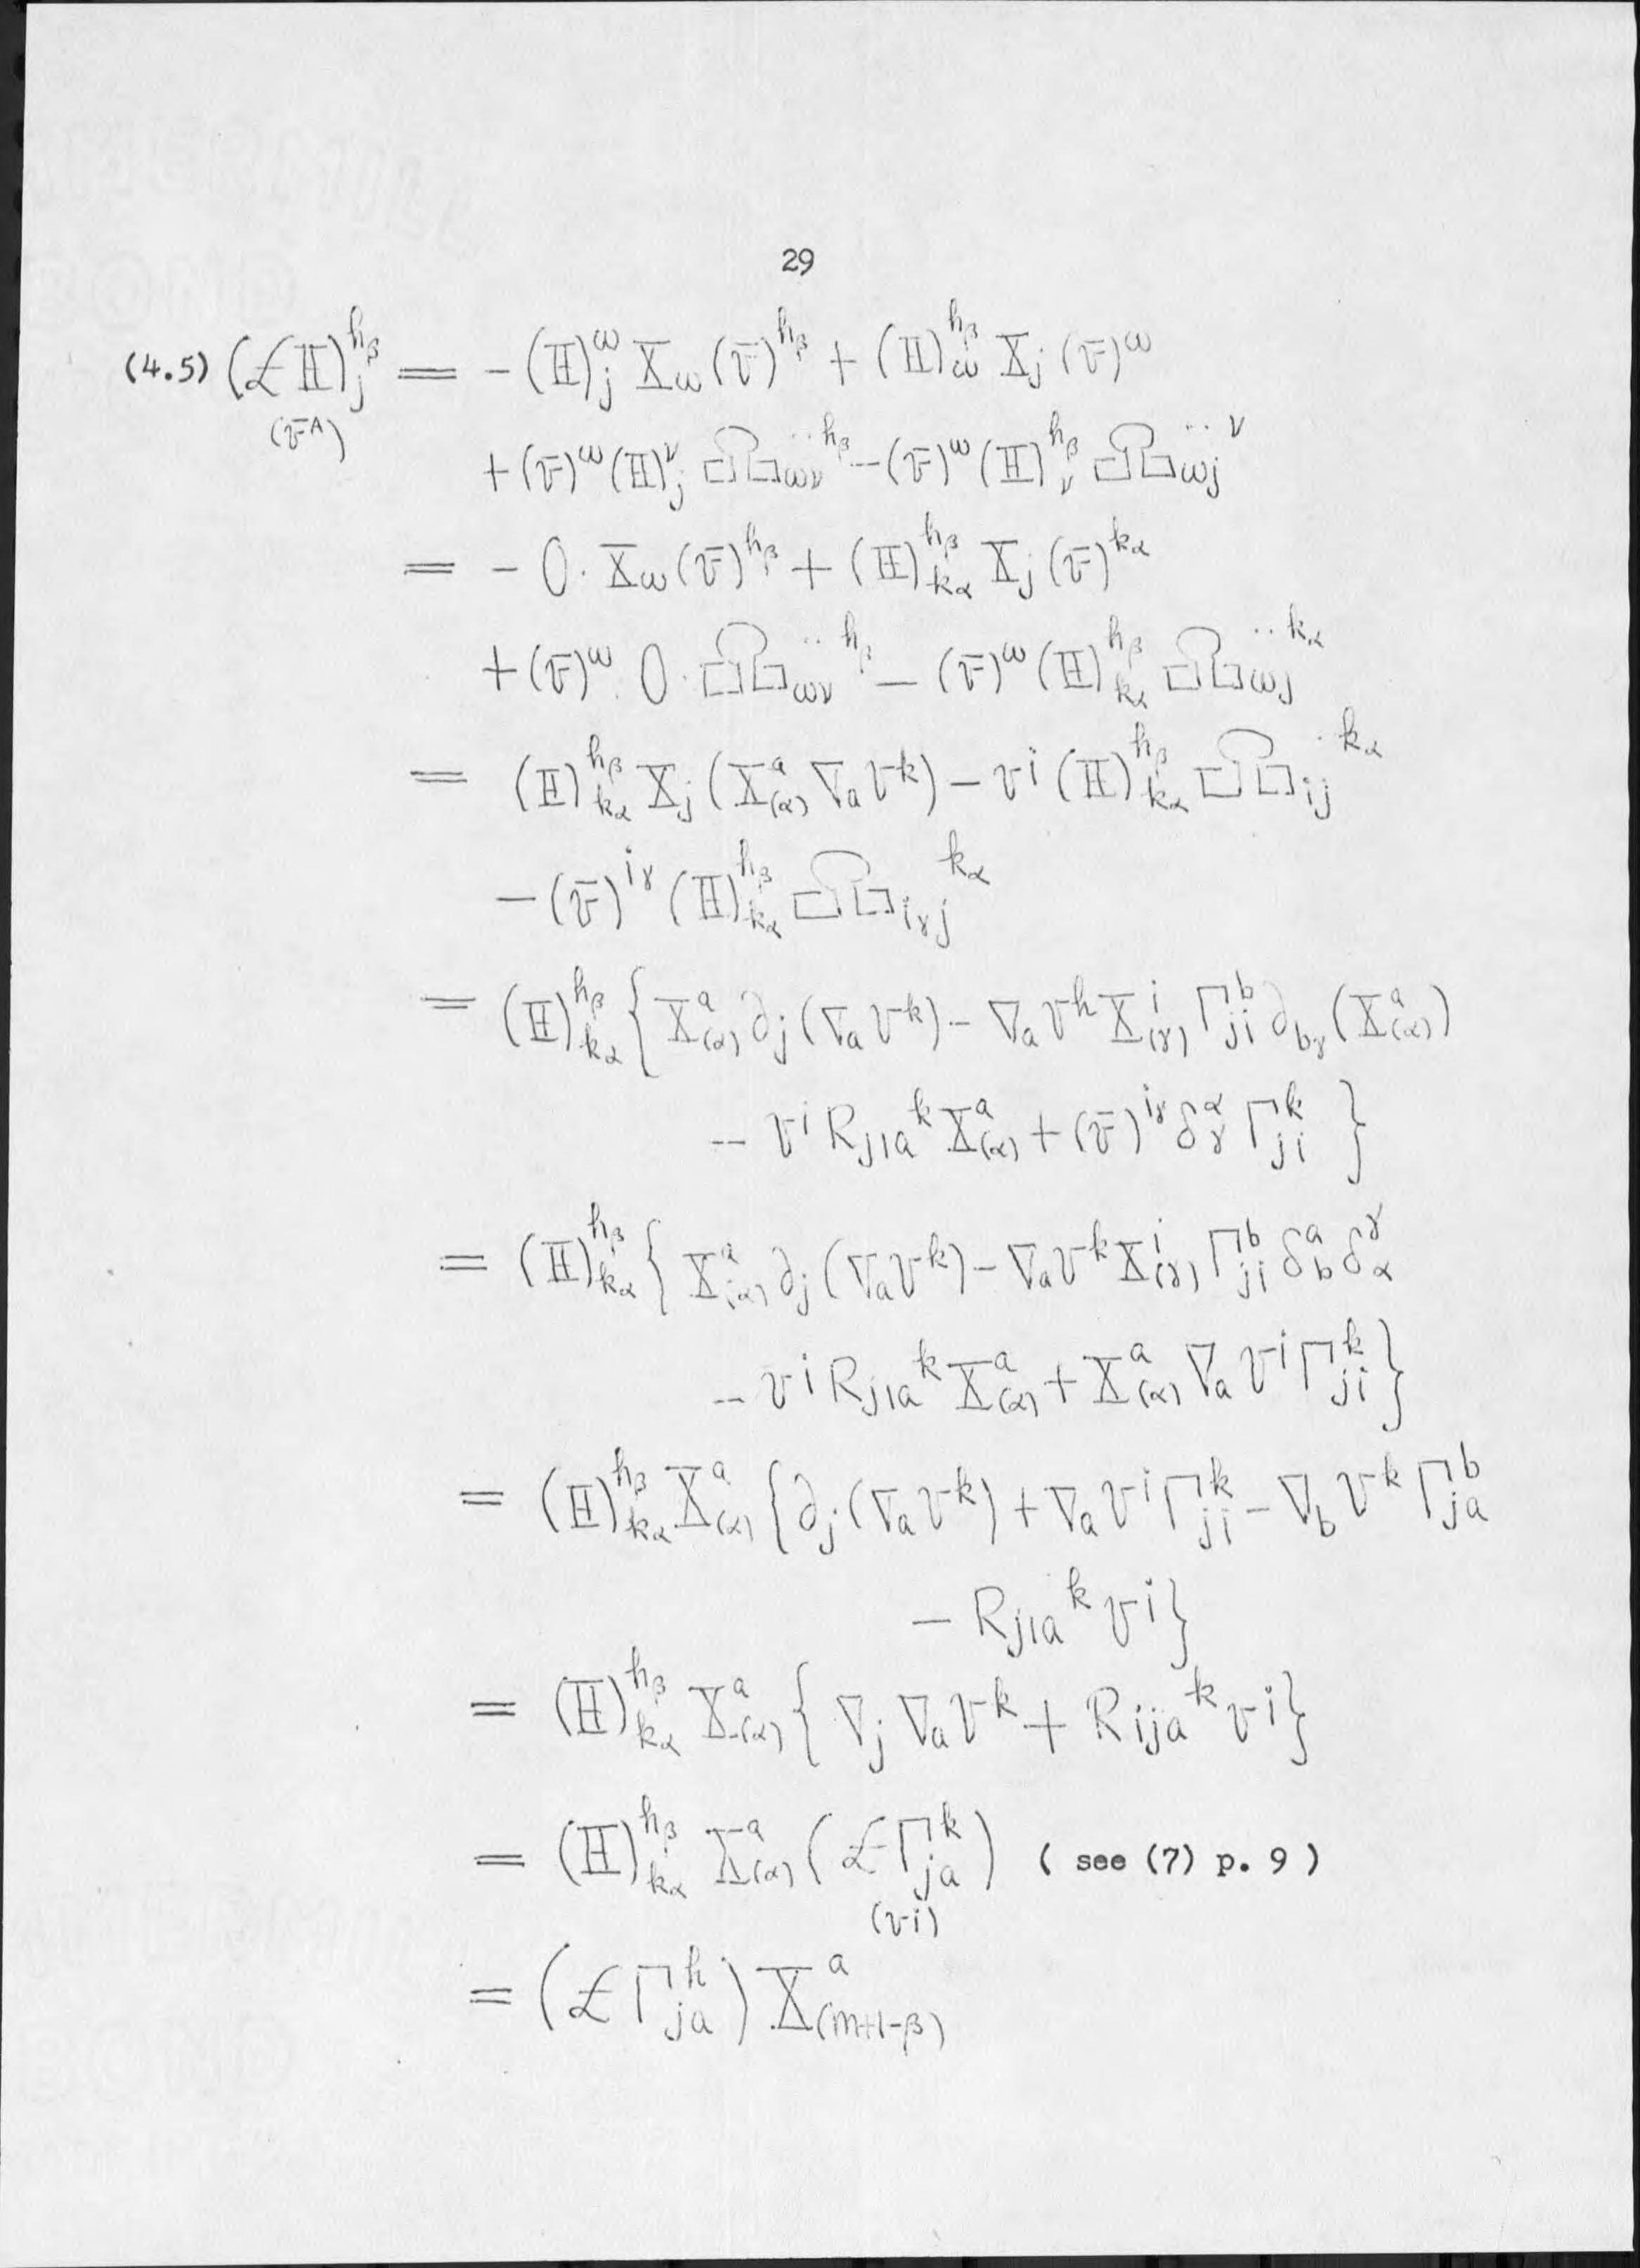 29
(4.5) (£Ⅱ)_j^{h_β} = -(Ⅱ)_j^ω X_ω (v̄)^{h_β} + (Ⅱ)_ω^{h_β} X_j (v̄)^ω
(v̄^A)
+ (v̄)^ω (Ⅱ)_j^ν Ω_{ων}^{··h_β} - (v̄)^ω (Ⅱ)_ν^{h_β} Ω_{ωj}^{··ν}
= - 0· X_ω (v̄)^{h_β} + (Ⅱ)_{k_α}^{h_β} X_j (v̄)^{k_α}
+ (v̄)^ω 0· Ω_{ων}^{··h_β} - (v̄)^ω (Ⅱ)_{k_α}^{h_β} Ω_{ωj}^{··k_α}
= (Ⅱ)_{k_α}^{h_β} X_j (X_{(α)}^a ∇_a v^k) - v^i (Ⅱ)_{k_α}^{h_β} Ω_{ij}^{·k_α}
- (v̄)^{i_γ} (Ⅱ)_{k_α}^{h_β} Ω_{i_γ j}^{k_α}
= (Ⅱ)_{k_α}^{h_β} { X_{(α)}^a ∂_j (∇_a v^k) - ∇_a v^h X_{(γ)}^i Γ_{ji}^b ∂_{b_γ} (X_{(α)}^a)
- v^i R_{jia}^k X_{(α)}^a + (v̄)^{i_γ} δ_γ^α Γ_{ji}^k }
= (Ⅱ)_{k_α}^{h_β} { X_{(α)}^a ∂_j (∇_a v^k) - ∇_a v^k X_{(γ)}^i Γ_{ji}^b δ_b^a δ_α^γ
- v^i R_{jia}^k X_{(α)}^a + X_{(α)}^a ∇_a v^i Γ_{ji}^k }
= (Ⅱ)_{k_α}^{h_β} X_{(α)}^a { ∂_j (∇_a v^k) + ∇_a v^i Γ_{ji}^k - ∇_b v^k Γ_{ja}^b
- R_{jia}^k v^i }
= (Ⅱ)_{k_α}^{h_β} X_{(α)}^a { ∇_j ∇_a v^k + R_{ija}^k v^i }
= (Ⅱ)_{k_α}^{h_β} X_{(α)}^a (£ Γ_{ja}^k) ( see (7) p. 9 )
(v^i)
= (£ Γ_{ja}^h) X_{(m+1-β)}^a